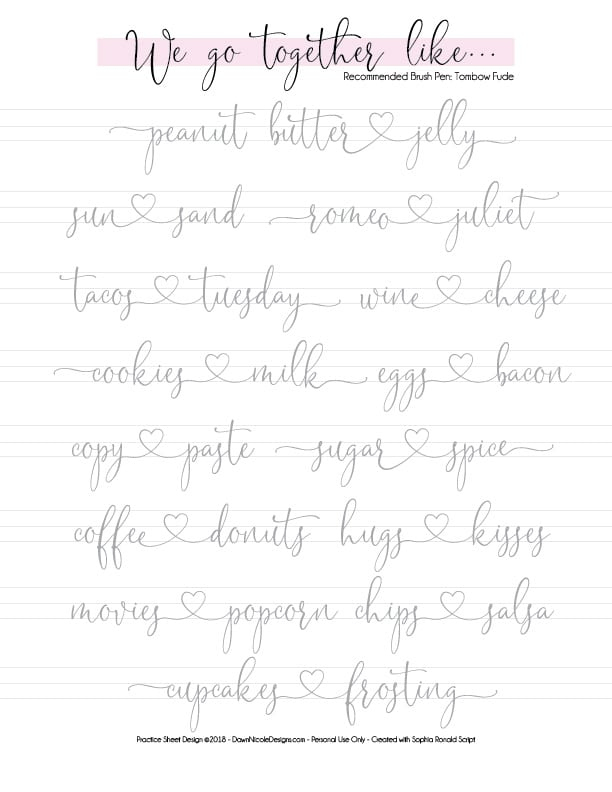 We go together like...
Recommended Brush Pen: Tombow Fude
peanut butter♡jelly
sun♡sand romeo♡juliet
tacos♡tuesday wine♡cheese
cookies♡milk eggs♡bacon
copy♡paste sugar♡spice
coffee♡donuts hugs♡kisses
movies♡popcorn chips♡salsa
cupcakes♡frosting
Practice Sheet Design ©2018 - DawnNicoleDesigns.com - Personal Use Only - Created with Sophia Ronald Script